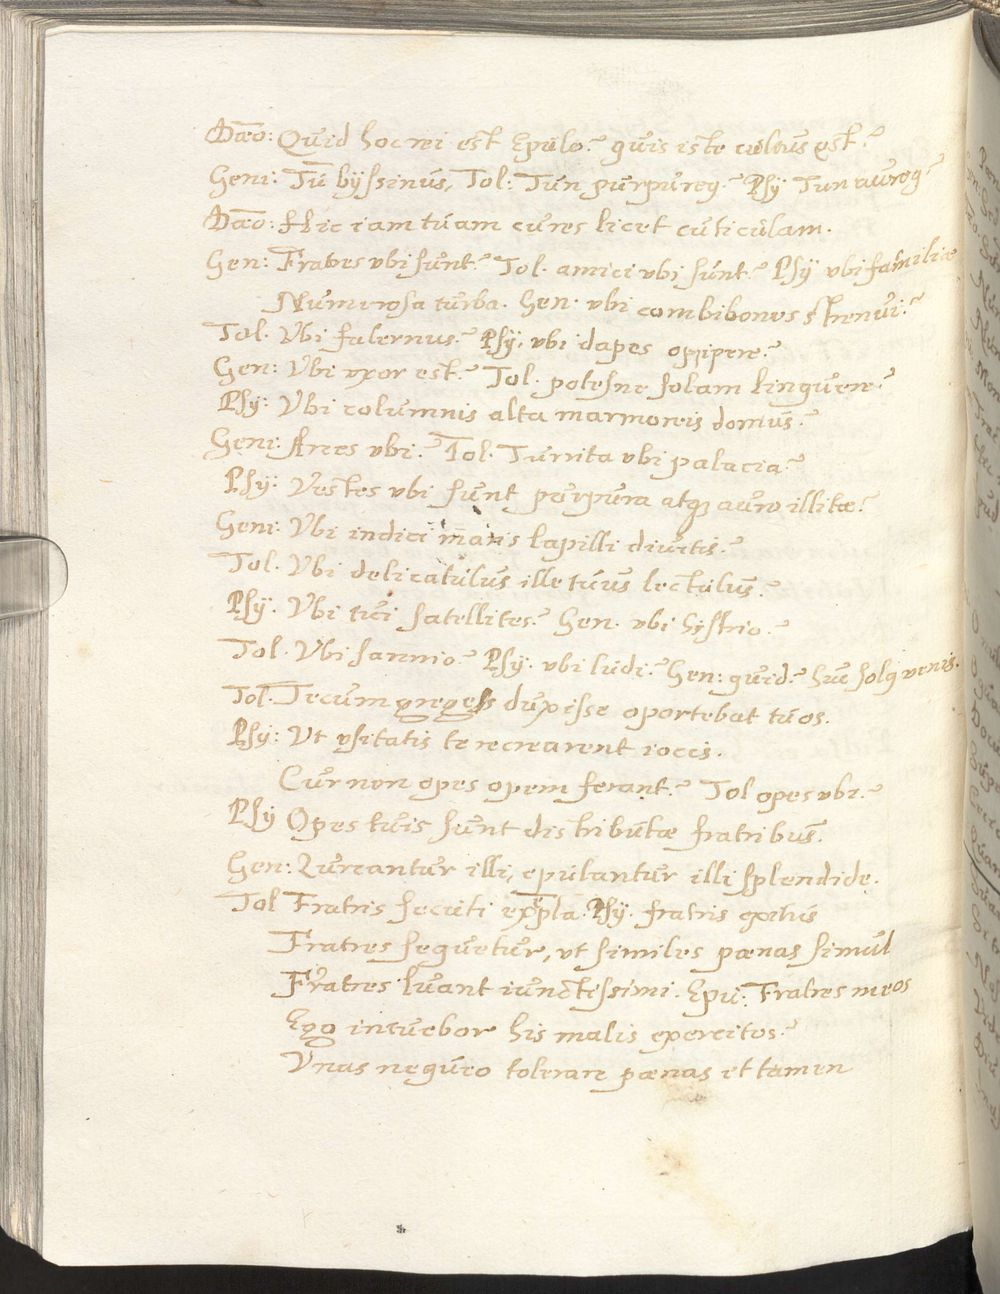 Dæo: Quid hoc rei est Epulo? quis iste cultus est?
Geni: Tũ byssinus, Tol: Tún purpureg? Psÿ Tun aureg?
Dæo: Hic iam tuam cures licet cuticulam.
Gen: Fratres vbi sunt? Tol. amici vbi sunt? Psÿ vbi familiæ
Numerosa turba. Gen. vbi combibones strenui?
Tol. Vbi falernus? Psÿ. vbi dapes opipere?
Gen: Vbi vxor est? Tol. potesne solam linquere?
Psÿ: Vbi columnis alta marmoreis domus?
Geni: Arces vbi? Tol. Turrita vbi palacia?
Psÿ: Vestes vbi sunt purpura atq; auro illitæ?
Geni: Vbi indici maris lapilli diuitis?
Tol. Vbi delicatulus ille tuus lectulus?
Psÿ. Vbi tui satellites? Gen. vbi hystrio?
Tol. Vbi sannio? Psÿ. vbi ludi? Gen: quid? huc solq venis.
Tol. Tecum greges duxisse oportebat tuos.
Psÿ: Vt vsitatis te recrearent iocis.
Cur non opes opem ferant? Tol opes vbi?
Psÿ Opes tuis sunt distributæ fratribus.
Gen: Lurcantur illi, epulantur illi splendide.
Tol Fratris secuti exp̃la. Psÿ. fratris exitus
Fratres sequetur, vt similes pænas simul
Fratres luant iunctissimi. Epu: Fratres meos
Ego intuebor his malis exercitos?
Vnas nequeo tolerare pænas et tamen